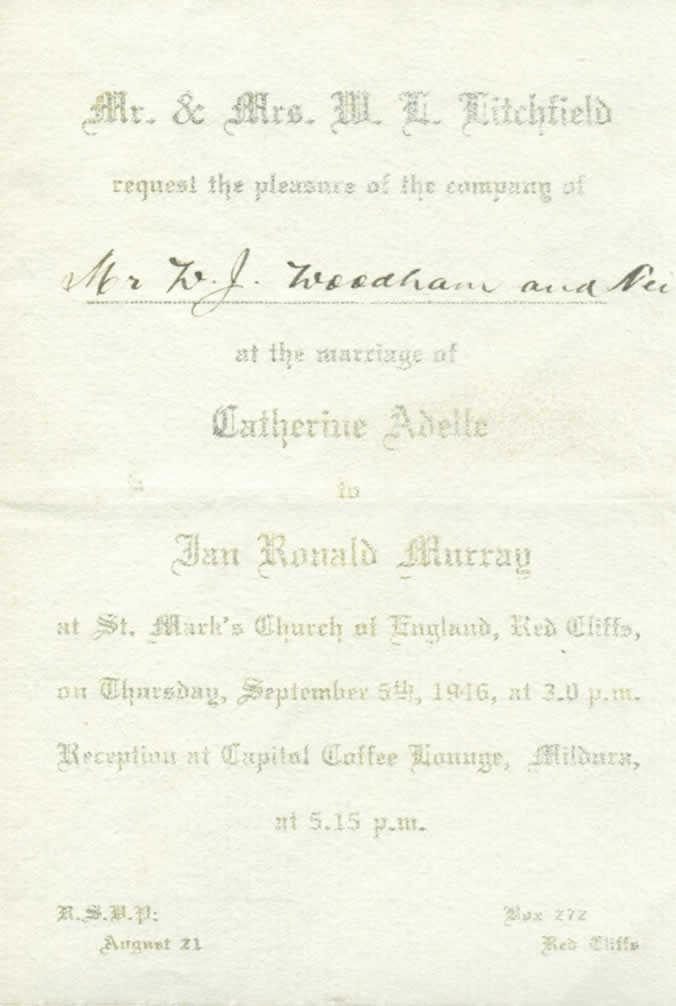 Mr. & Mrs. W. L. Litchfield
request the pleasure of the company of
Mr W. J. Woodham and
at the marriage of
Catherine Adelle
to
Ian Ronald Murray
at St. Mark's Church of England, Red Cliffs,
on Thursday, September 5th, 1946, at 3.0 p.m.
Reception at Capitol Coffee Lounge, Mildura,
at 5.15 p.m.
R.S.V.P:
August 21
Box 272
Red Cliffs